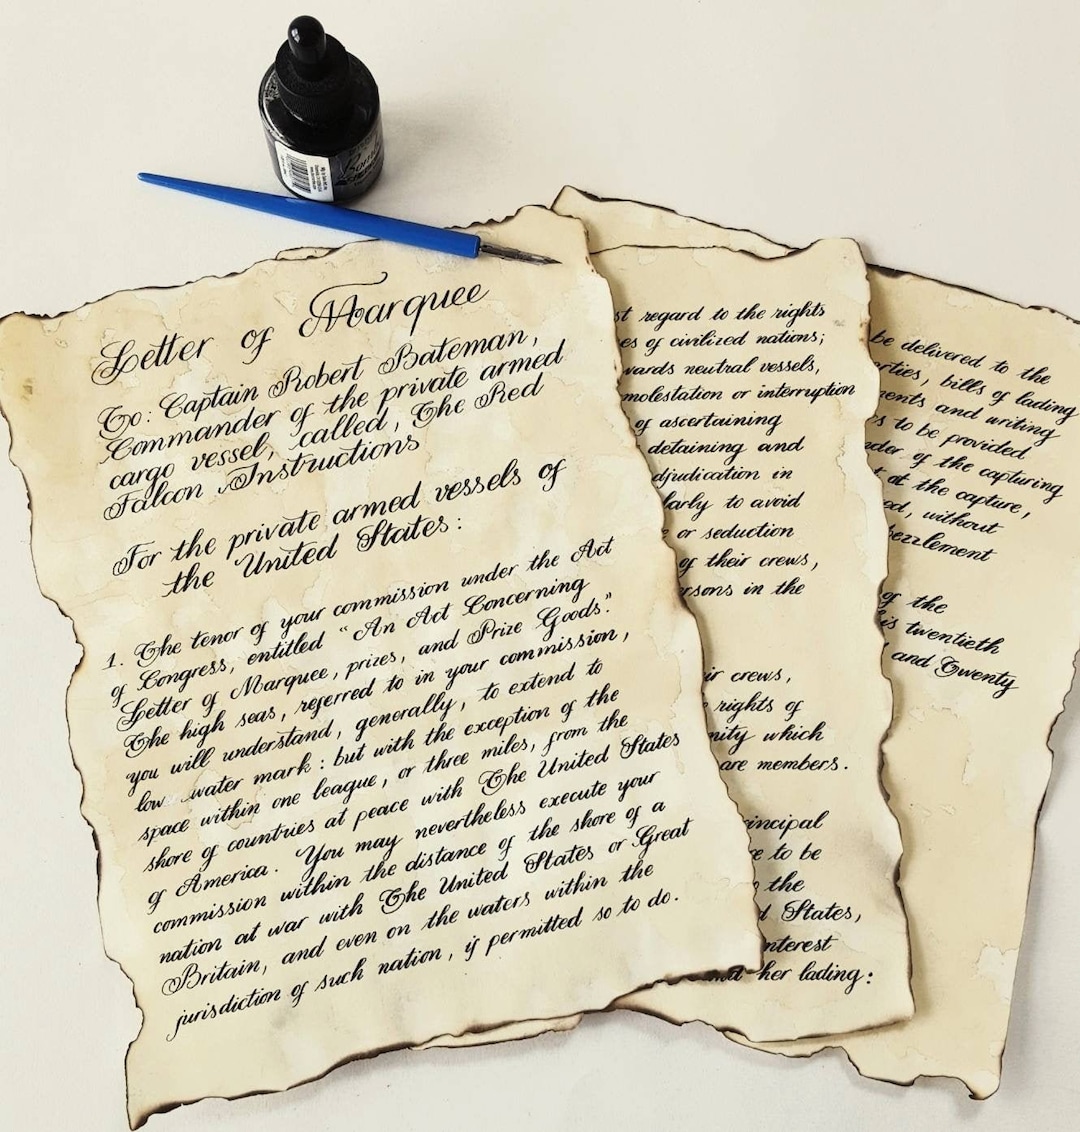 Letter of Marquee
To: Captain Robert Bateman,
Commander of the private armed
cargo vessel, called, The Red
Falcon Instructions
For the private armed vessels of
the United States:
1. The tenor of your commission under the Act
of Congress, entitled "An Act Concerning
Letter of Marquee, prizes, and Prize Goods."
The high seas, referred to in your commission,
you will understand, generally, to extend to
low water mark: but with the exception of the
space within one league, or three miles, from the
shore of countries at peace with The United States
of America. You may nevertheless execute your
commission within the distance of the shore of a
nation at war with The United States or Great
Britain, and even on the waters within the
jurisdiction of such nation, if permitted so to do.
regard to the rights
of civilized nations;
neutral vessels,
molestation or interruption
of ascertaining
detaining and
in
to avoid
or seduction
of their crews,
in the
crews,
rights of
which
are members.
to be
the
States,
her lading:
be delivered to the
bills of lading
and writing
to be provided
of the capturing
at the capture,
without
of the
twentieth
and Twenty